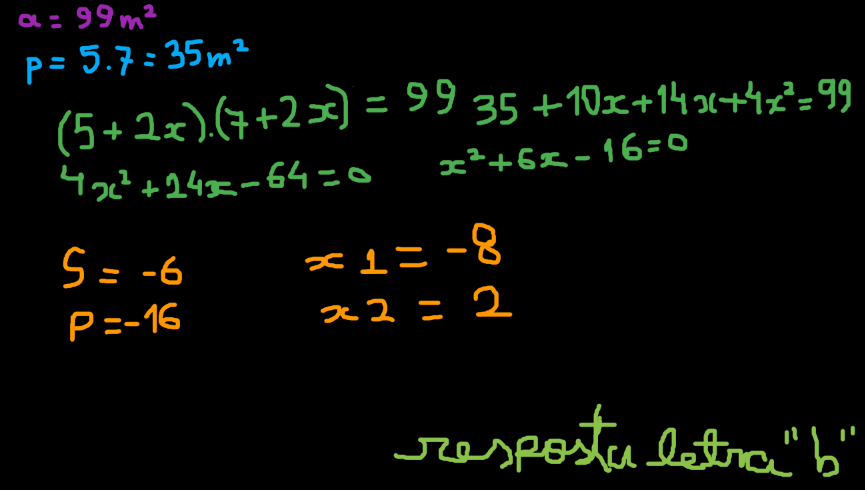 a = 99m²
p = 5.7 = 35m²
(5+2x).(7+2x) = 99 35+10x+14x+4x²=99
4x²+24x-64=0 x²+6x-16=0
S = -6 x1 = -8
P = -16 x2 = 2
resposta letra "b"